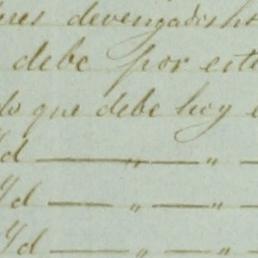 res devengadas h
debe por este
do que debe hoy
Yd — " — " —
Yd — " — " —
Yd — " — " —